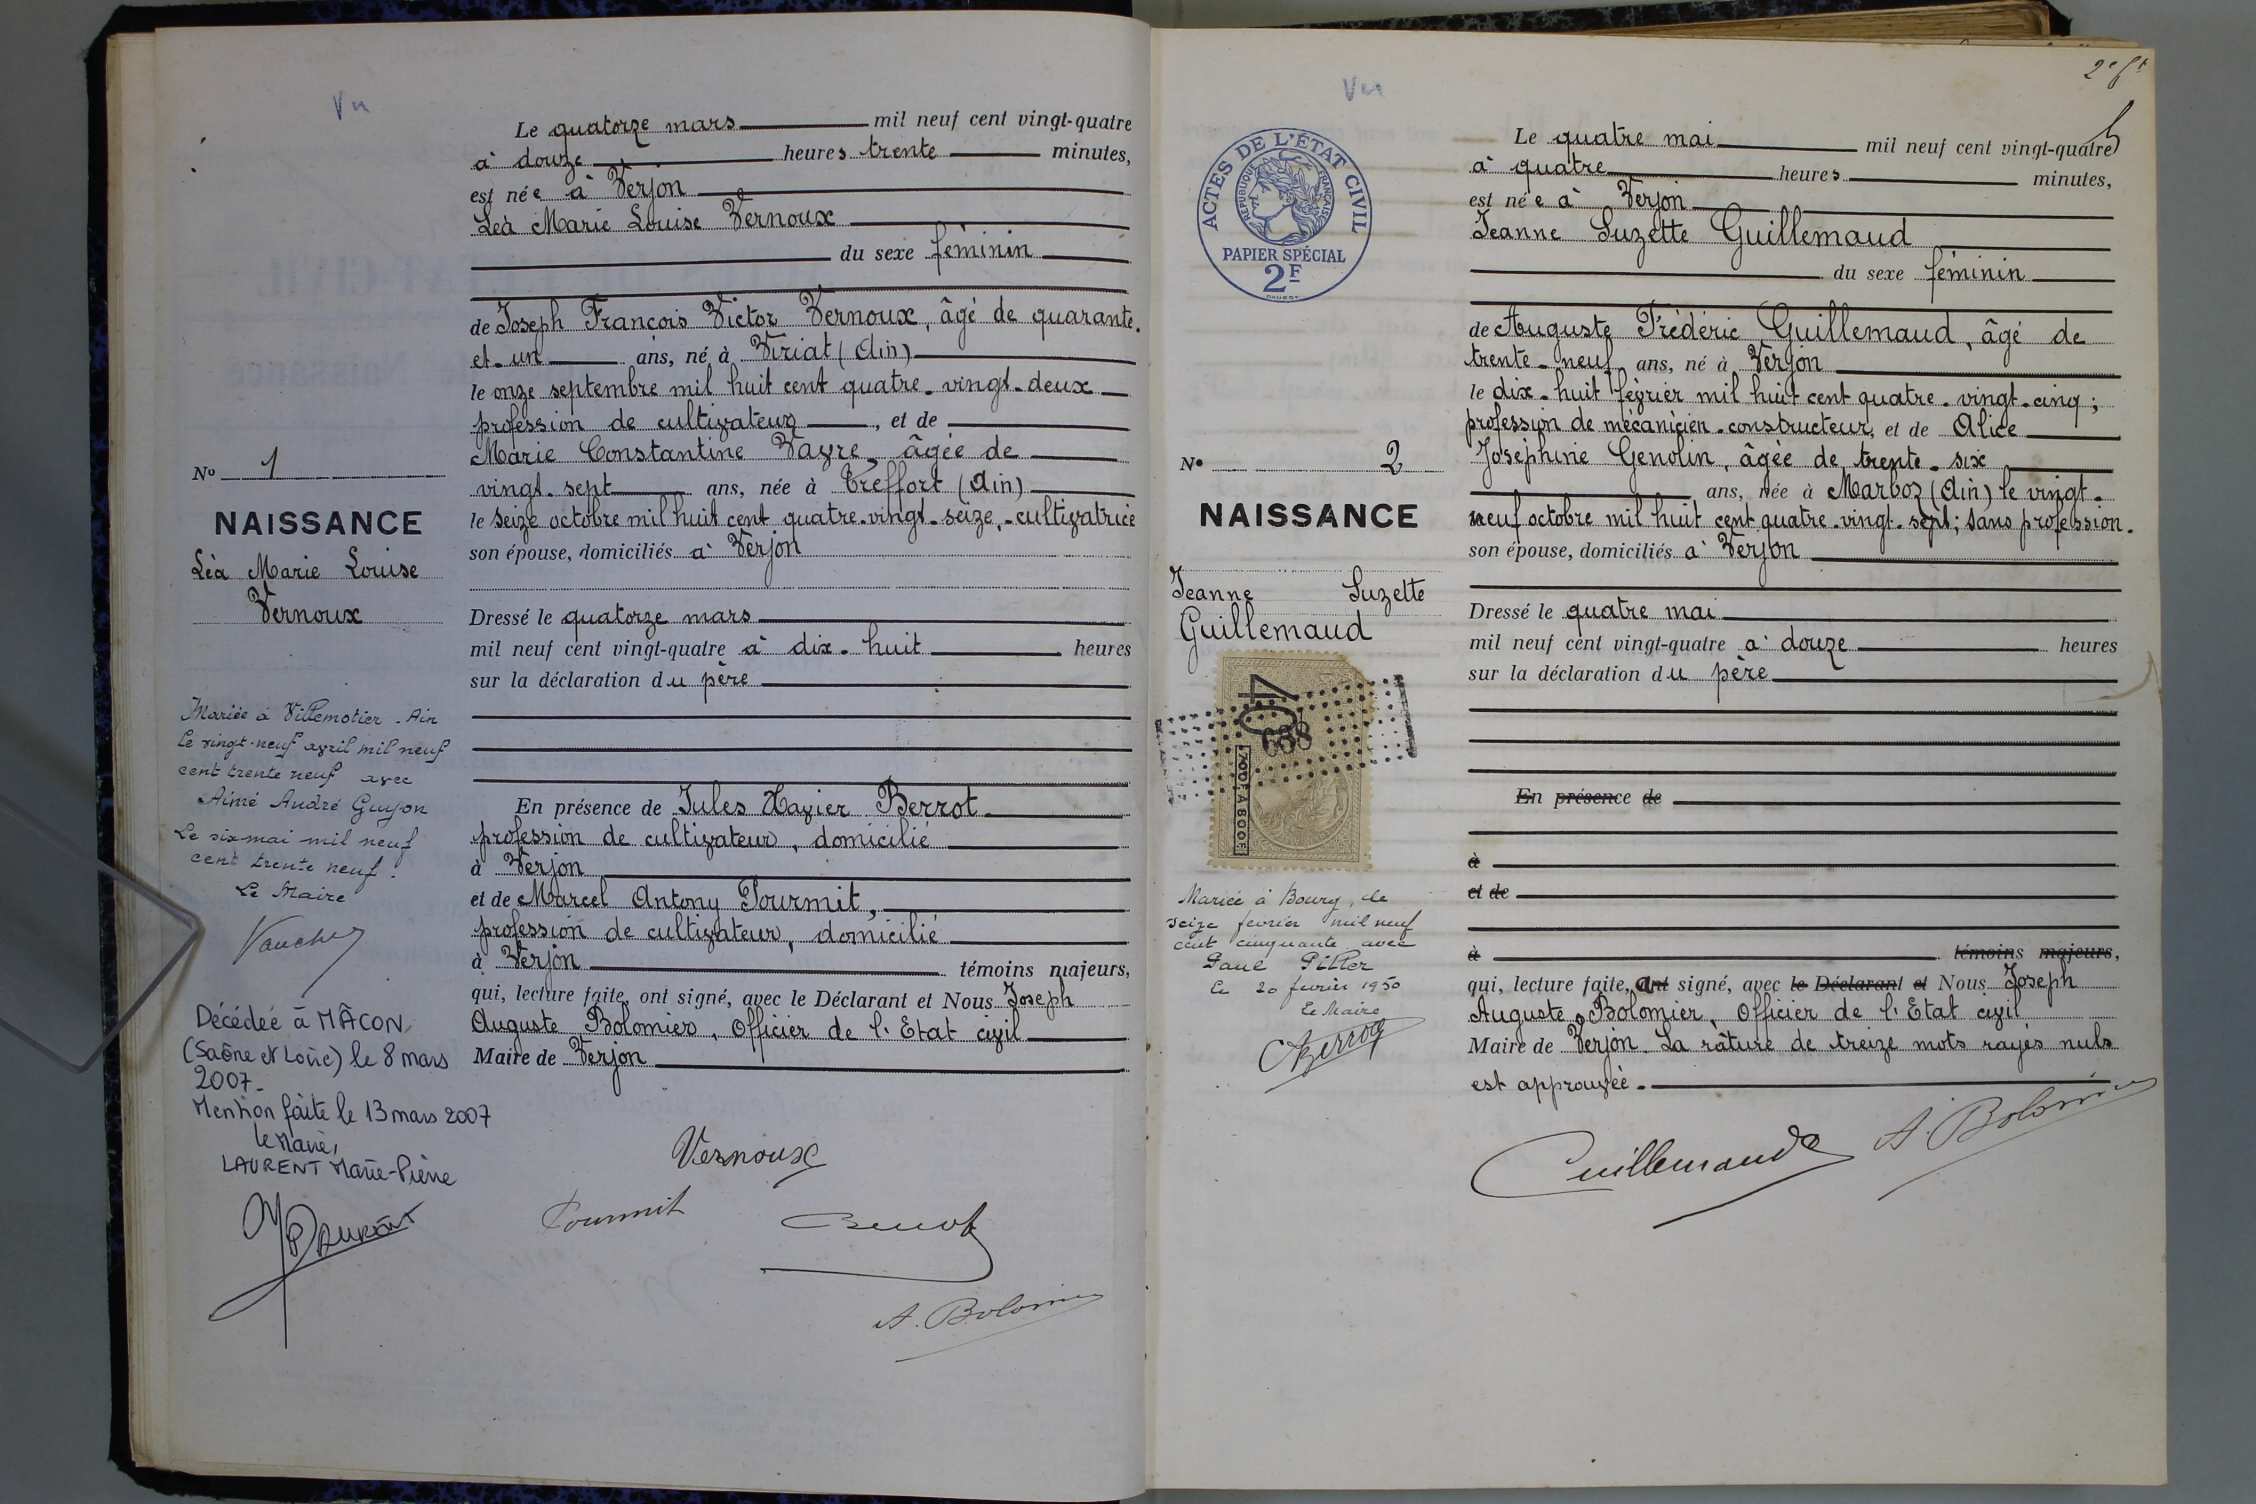 Vu
Le quatorze mars mil neuf cent vingt-quatre
à douze heures trente minutes,
est née à Verjon
Léa Marie Louise Vernoux
du sexe féminin
de Joseph François Victor Vernoux, âgé de quarante.
et un ans, né à Viriat (Ain)
le onze septembre mil huit cent quatre-vingt-deux
profession de cultivateur, et de
Marie Constantine Vayre, âgée de
vingt-sept ans, née à Treffort (Ain)
le seize octobre mil huit cent quatre-vingt-seize, cultivatrice
son épouse, domiciliés à Verjon
Dressé le quatorze mars
mil neuf cent vingt-quatre à dix-huit heures
sur la déclaration du père
En présence de Jules Xavier Berrot
profession de cultivateur, domicilié
à Verjon
et de Marcel Antony Fourmit,
profession de cultivateur, domicilié
à Verjon témoins majeurs,
qui, lecture faite, ont signé, avec le Déclarant et Nous Joseph
Auguste Bolomier, Officier de l'Etat civil
Maire de Verjon
Vernoux
Fourmit
Berrot
A. Bolomier
No 1
NAISSANCE
Léa Marie Louise
Vernoux
Mariée à Villemotier - Ain
le vingt-neuf avril mil neuf
cent trente neuf avec
Aimé André Guyon
Le six mai mil neuf
cent trente neuf !
Le Maire
Décédée à MÂCON
(Saône et Loire) le 8 mars
2007.
Mention faite le 13 mars 2007
le Maire,
LAURENT Marie-Pierre
Vu
2e ft
ACTES DE L'ÉTAT CIVIL
RÉPUBLIQUE FRANÇAISE
PAPIER SPÉCIAL
2F
Le quatre mai mil neuf cent vingt-quatre
à quatre heures minutes,
est née à Verjon
Jeanne Suzette Guillemaud
du sexe féminin
de Auguste Frédéric Guillemaud, âgé de
trente-neuf ans, né à Verjon
le dix-huit février mil huit cent quatre-vingt-cinq ;
profession de mécanicien-constructeur, et de Alice
Joséphine Genolin, âgée de trente-six
ans, née à Marboz (Ain) le vingt-
neuf octobre mil huit cent quatre-vingt-sept ; sans profession.
son épouse, domiciliés à Verjon
Dressé le quatre mai
mil neuf cent vingt-quatre à douze heures
sur la déclaration du père
En présence de
à
et de
à témoins majeurs,
qui, lecture faite, ont signé, avec le Déclarant et Nous Joseph
Auguste Bolomier, Officier de l'Etat civil
Maire de Verjon. La rature de treize mots rayés nuls
est approuvée.
Guillemaud
A. Bolomier
No 2
NAISSANCE
Jeanne Suzette
Guillemaud
40
638
Mariée à Bourg, le
seize février mil neuf
cent cinquante avec
Paul Piller
Le 20 février 1950
Le Maire